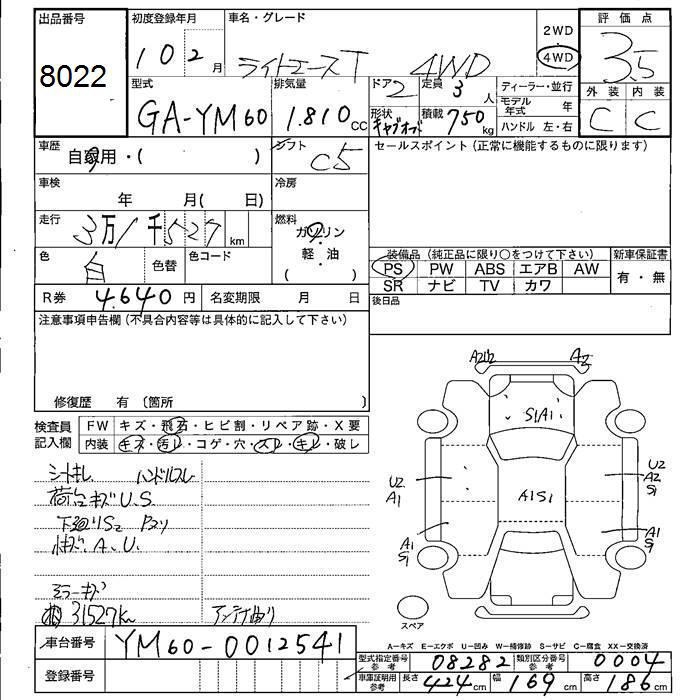 出品番号 初度登録年月 車名・グレード 2WD 評価点
8022 10 2 月 ライトエースT 4WD 4WD 3.5
型式 排気量 ドア 定員 ディーラー・並行 外装 内装
GA-YM60 1.810 CC 2 3 人 モデル年式 年 C C
形状 キャブオーバ 積載 750 kg ハンドル 左・右
車歴 自家用・( ) シフト C5 セールスポイント(正常に機能するものに限ります)
車検 年 月( 日) 冷房
走行 3万1千527 km 燃料 ガソリン
軽・油
( ・ )
色 白 色替 色コード 装備品(純正品に限り○をつけて下さい) 新車保証書
PS PW ABS エアB AW 有・無
SR ナビ TV カワ
R券 4.640 円 名変期限 月 日 後日品
注意事項申告欄(不具合内容等は具体的に記入して下さい)
修復歴 有 (箇所 )
検査員記入欄 FW キズ・飛石・ヒビ割・リペア跡・X要
内装 キズ・汚レ・コゲ・穴・スレ・キレ・破レ
シートキレ ハンドルスレ
荷台キズU.S
下廻りS2 Pヌリ
A.U.
ミラーキズ
31527km アンテナ曲り
A2
S1A1
A1S1
U2
A1
U2
A2
S1
A1
S1
A1
S1
スペア
A-キズ E-エクボ U-凹み W-補修跡 S-サビ C-腐食 XX-交換済
車台番号 YM60-0012541
登録番号
型式指定番号参考 08282 類別区分番号参考 0004
車庫証明用参考 長さ 424 cm 幅 169 cm 高さ 186 cm